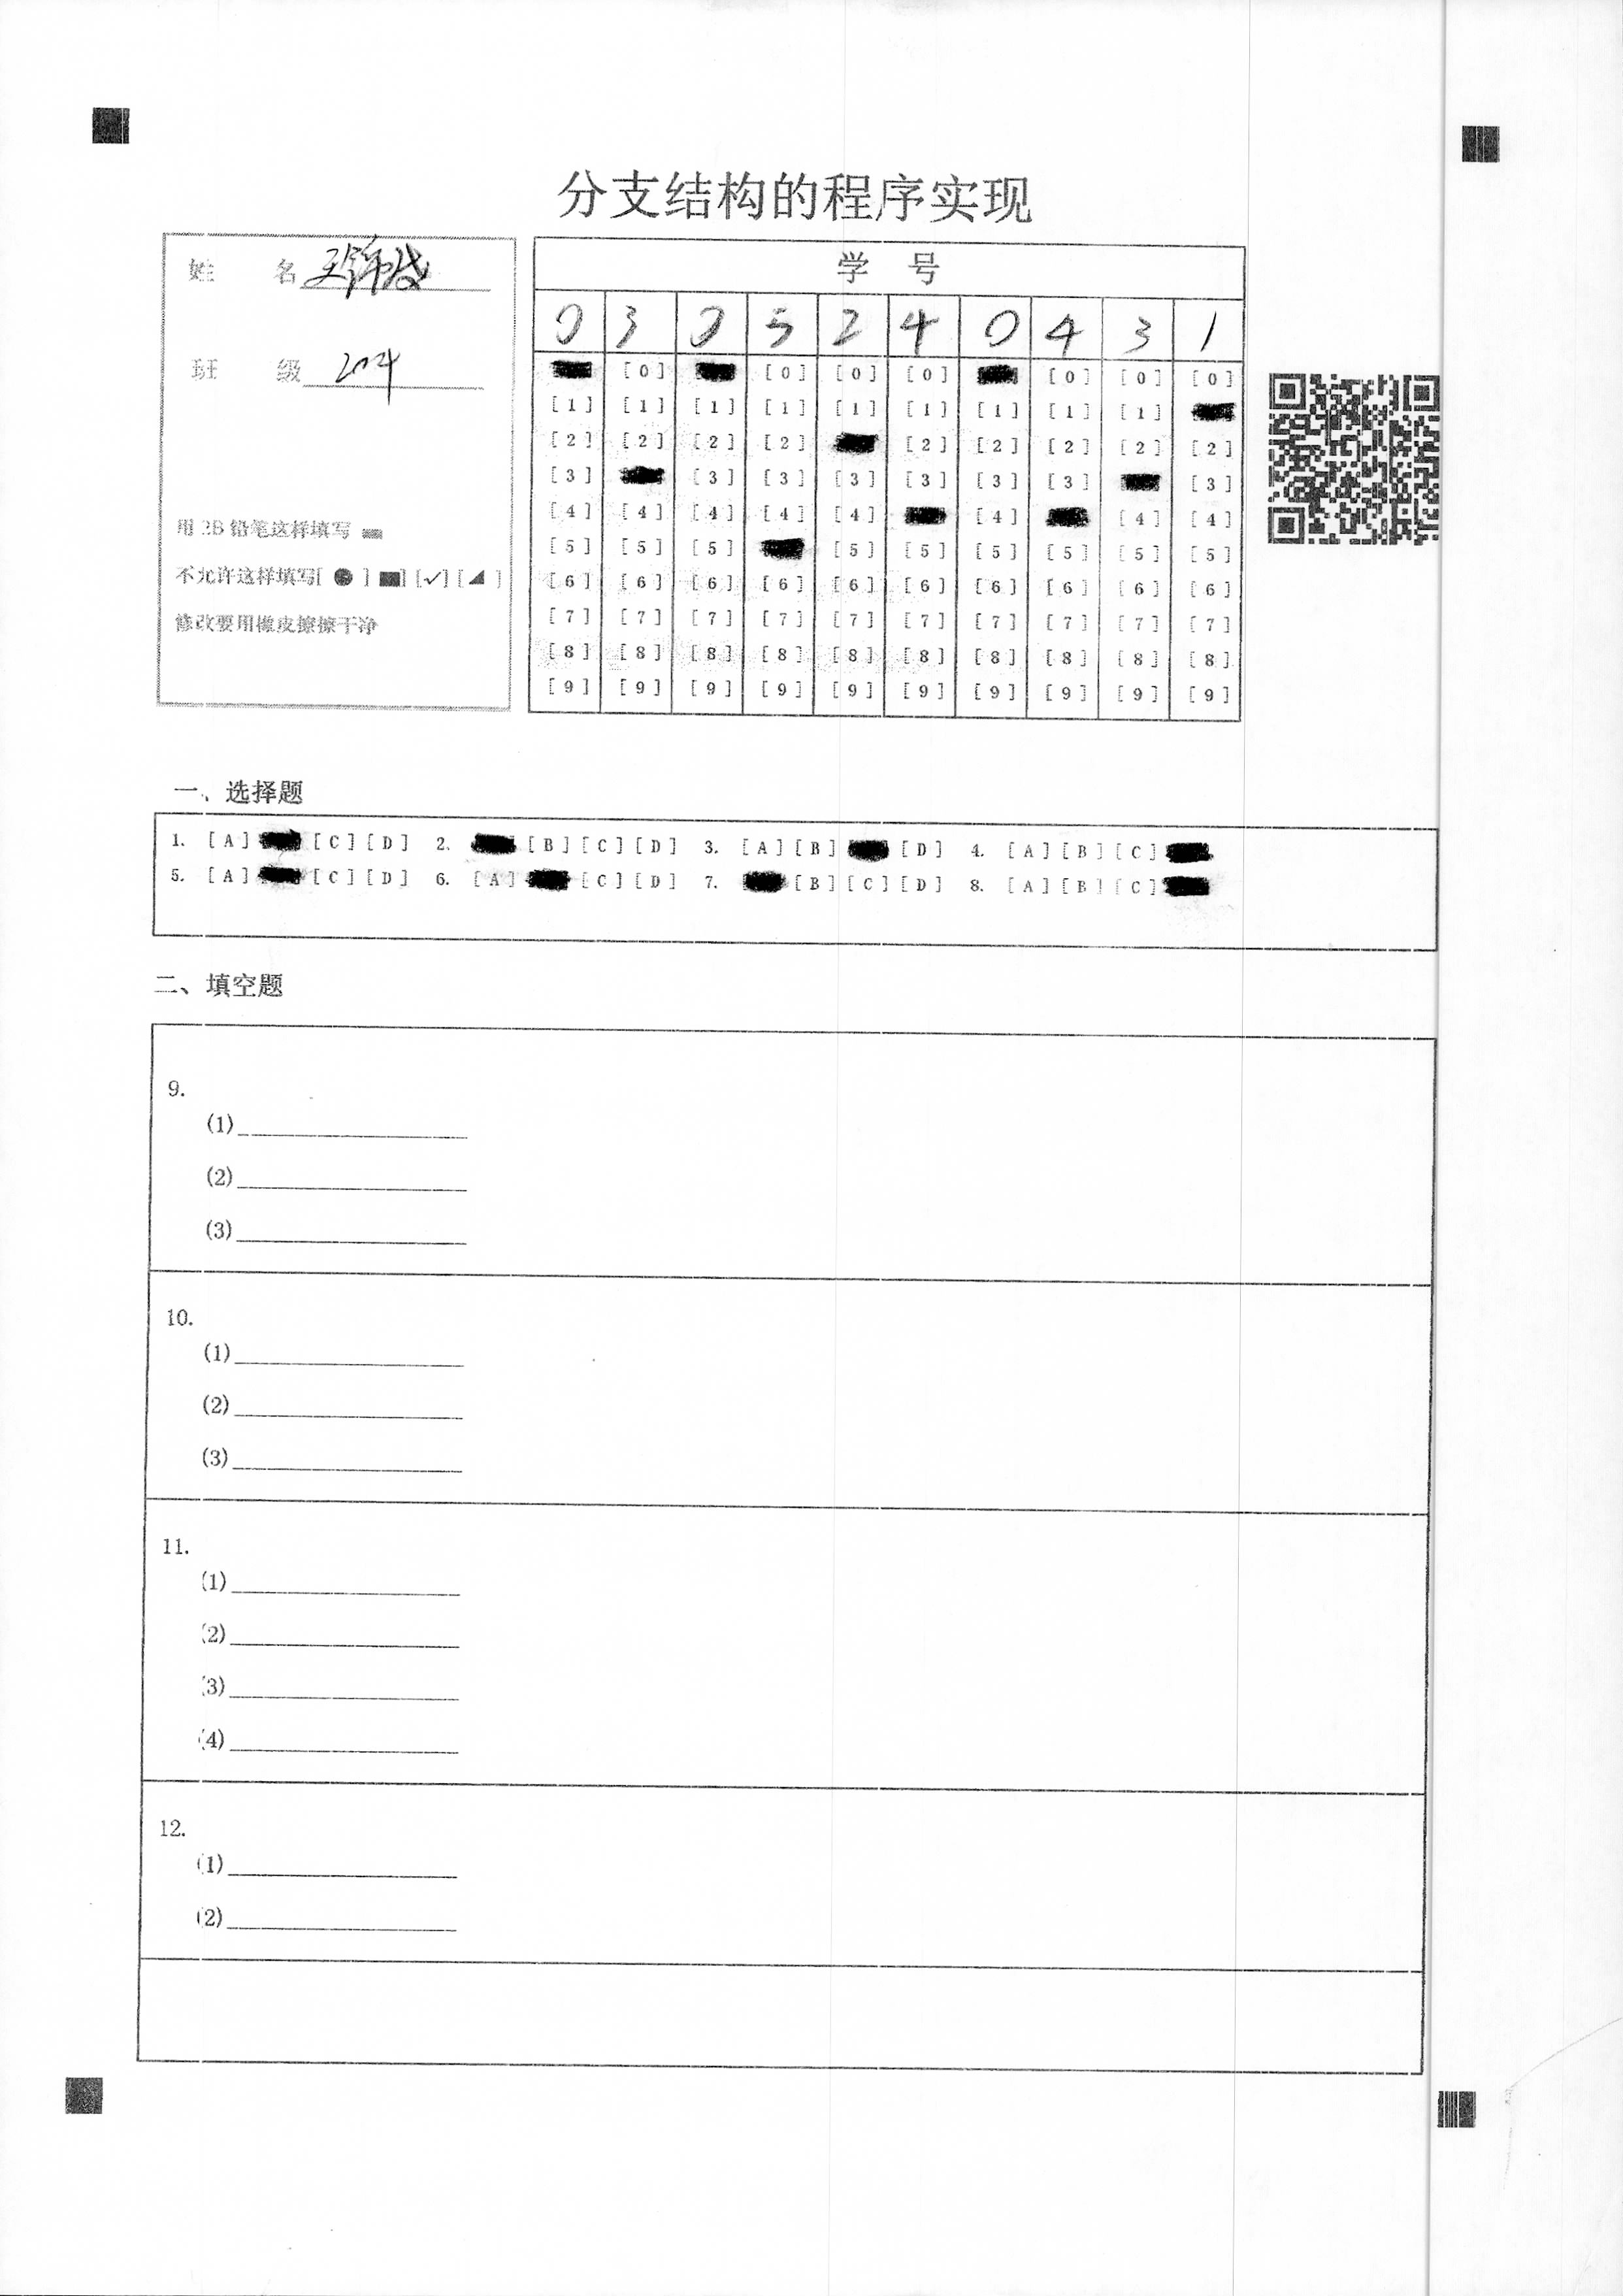 分支结构的程序实现
姓 名 王
班 级 204
用 2B 铅笔这样填写
不允许这样填写[ ] [✓] [ ]
修改要用橡皮擦擦干净
学 号
0 3 0 5 2 4 0 4 3 1
[0] [0] [0] [0] [0] [0] [0]
[1] [1] [1] [1] [1] [1] [1] [1] [1]
[2] [2] [2] [2] [2] [2] [2] [2] [2]
[3] [3] [3] [3] [3] [3] [3] [3]
[4] [4] [4] [4] [4] [4] [4] [4]
[5] [5] [5] [5] [5] [5] [5] [5] [5]
[6] [6] [6] [6] [6] [6] [6] [6] [6] [6]
[7] [7] [7] [7] [7] [7] [7] [7] [7] [7]
[8] [8] [8] [8] [8] [8] [8] [8] [8] [8]
[9] [9] [9] [9] [9] [9] [9] [9] [9] [9]
一、选择题
1. [A] [C] [D] 2. [B] [C] [D] 3. [A] [B] [D] 4. [A] [B] [C]
5. [A] [C] [D] 6. [A] [C] [D] 7. [B] [C] [D] 8. [A] [B] [C]
二、填空题
9.
(1)
(2)
(3)
10.
(1)
(2)
(3)
11.
(1)
(2)
(3)
(4)
12.
(1)
(2)